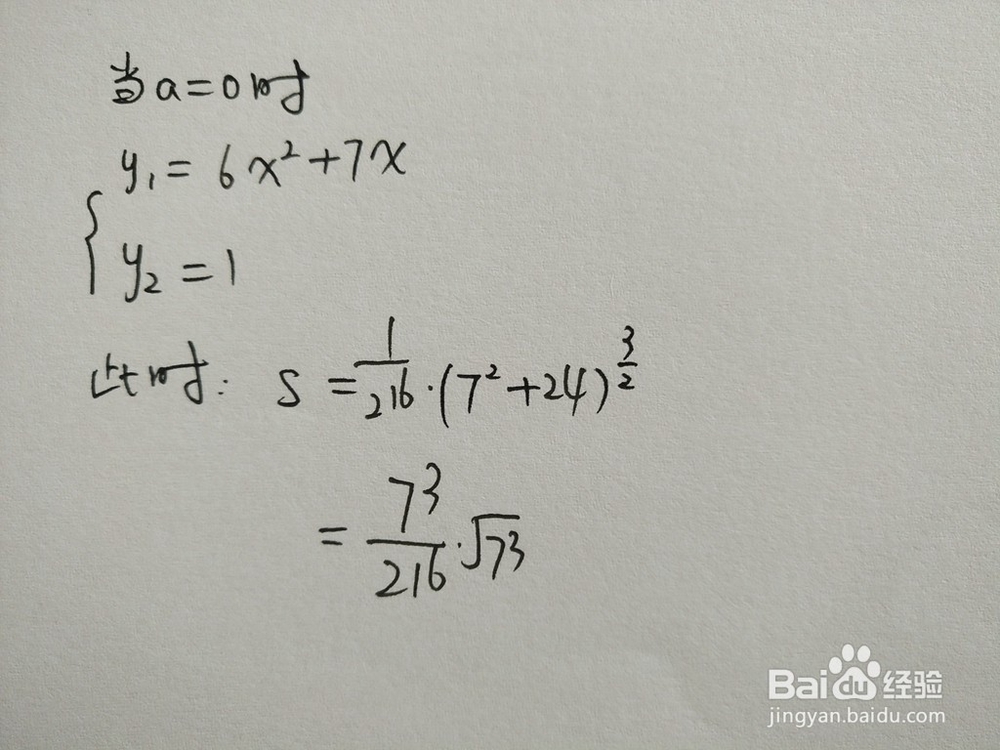 当a=0时
y₁=6x²+7x
{
y₂=1
此时: S=1/216·(7²+24)^(3/2)
=73/216·√73
Baidu经验
jingyan.baidu.com